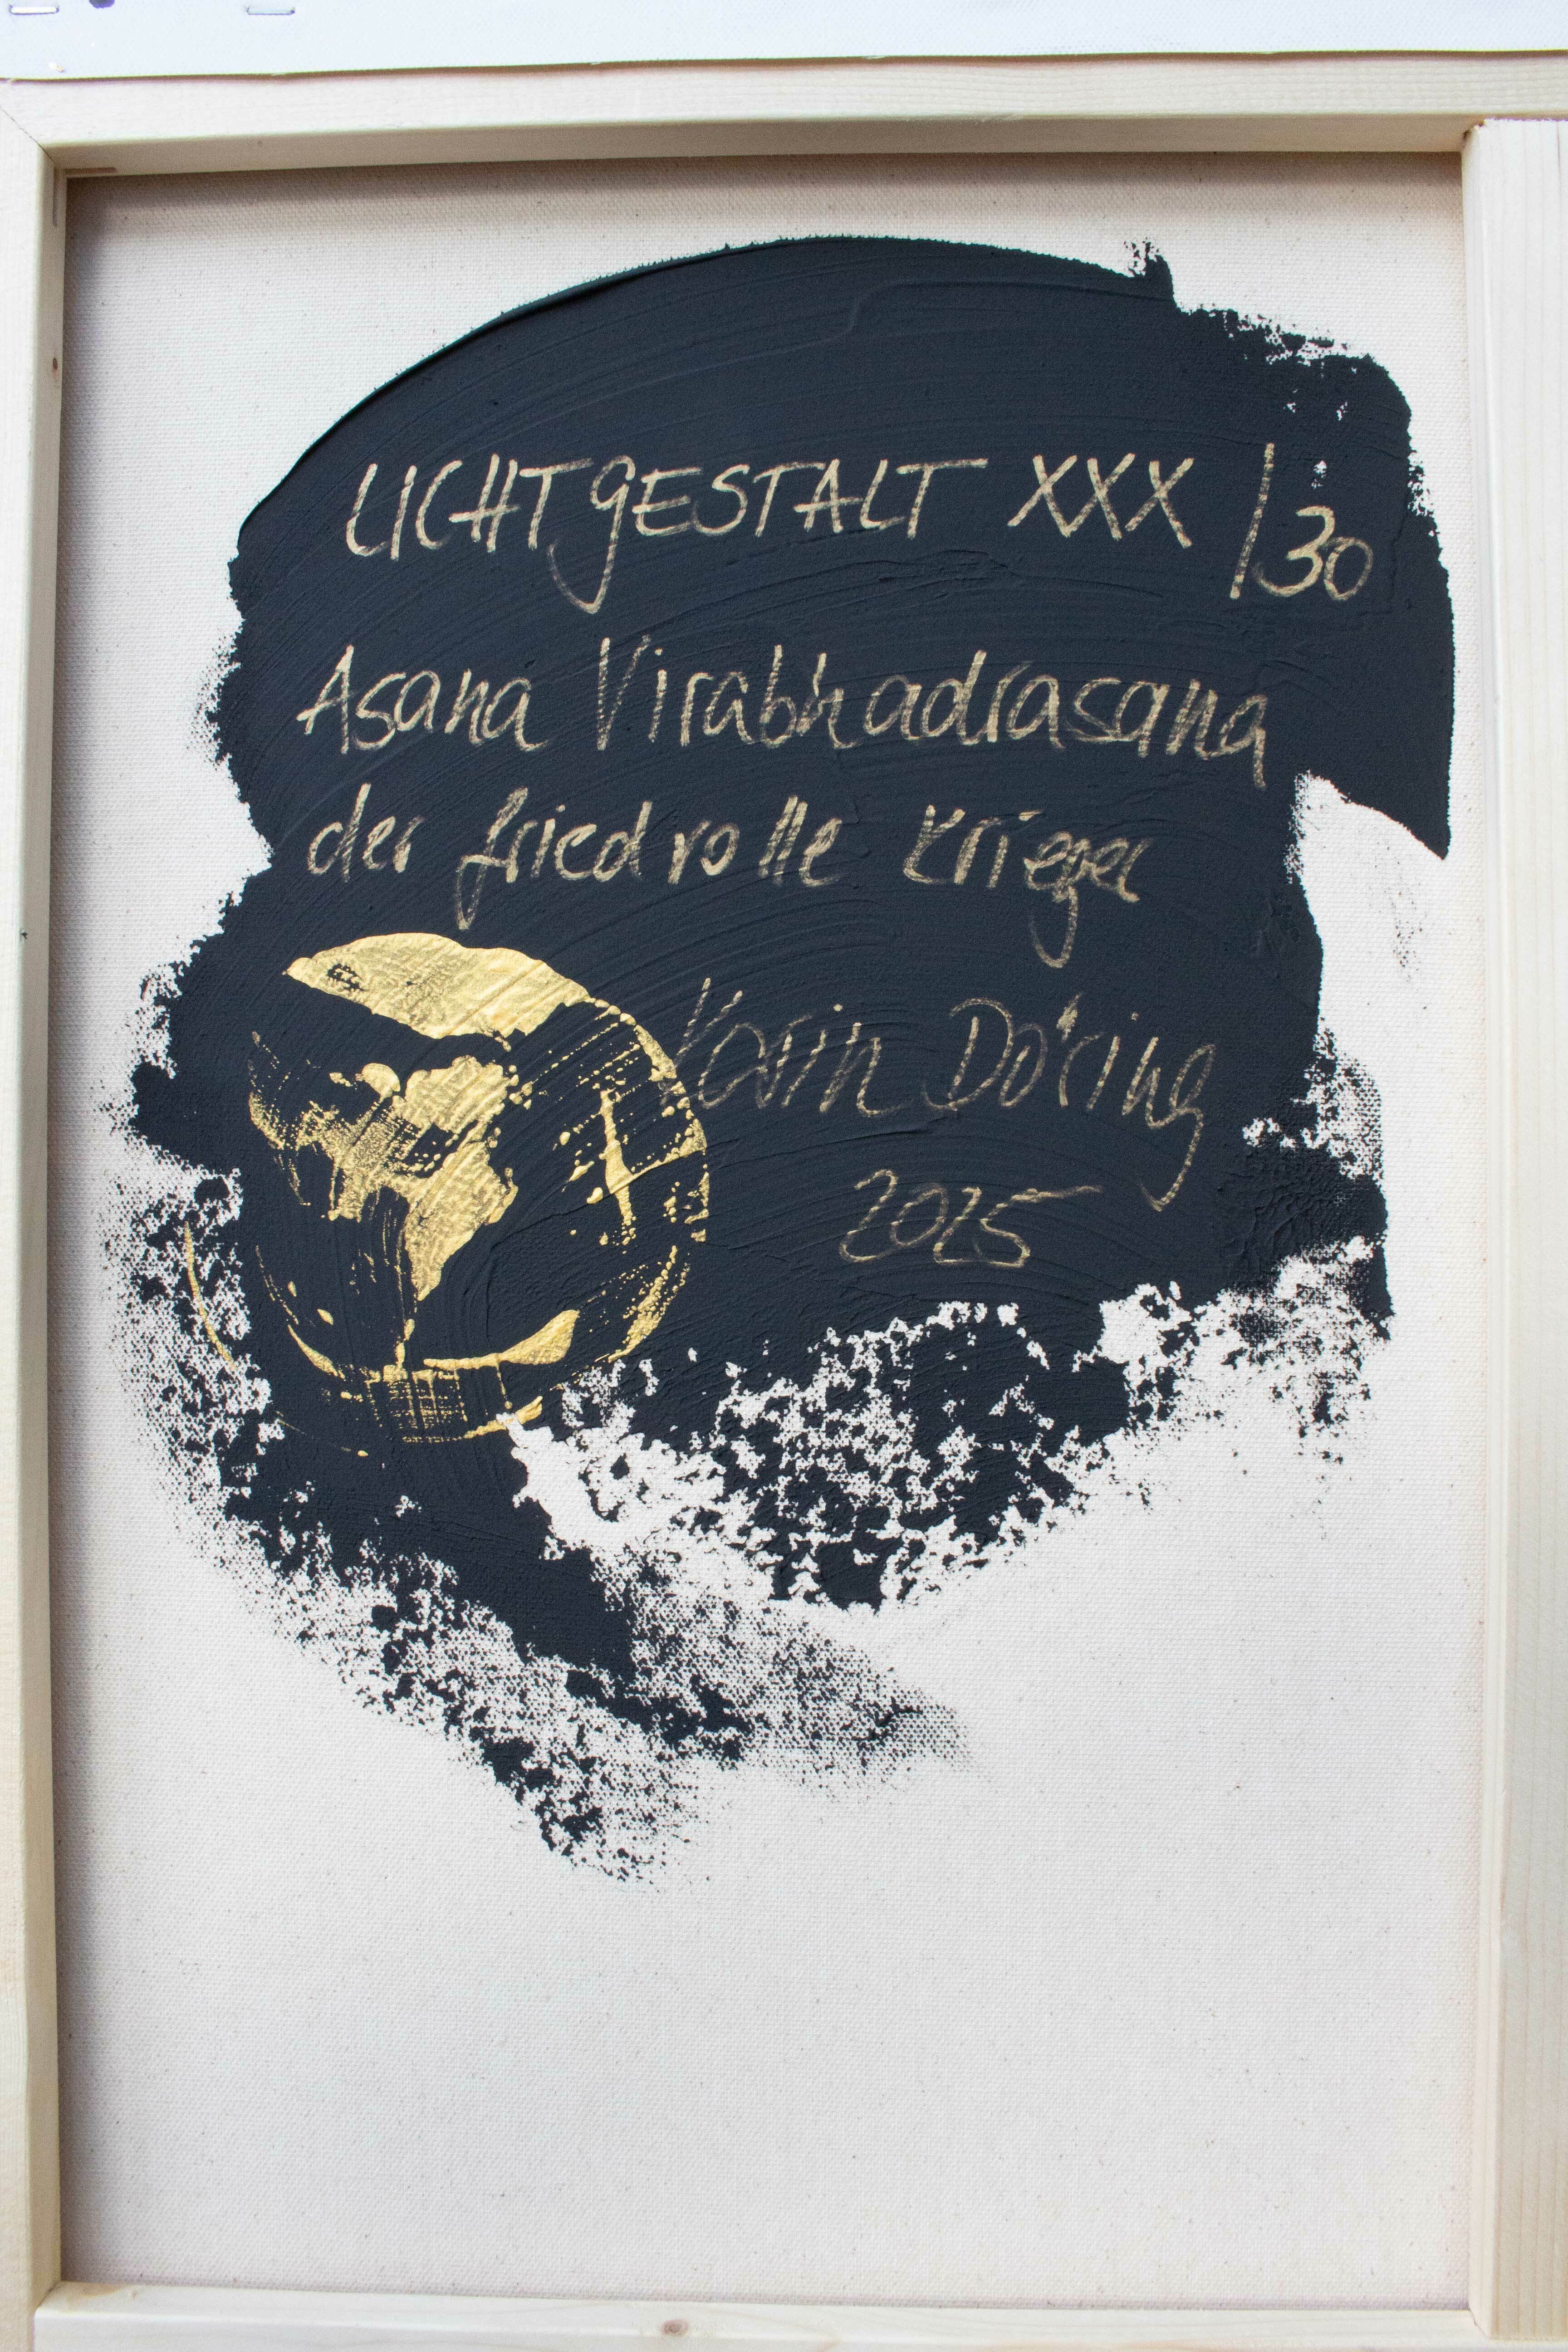 LICHTGESTALT XXX /30
Asana Virabhadrasana
der friedvolle Krieger
Karin Döring
2025